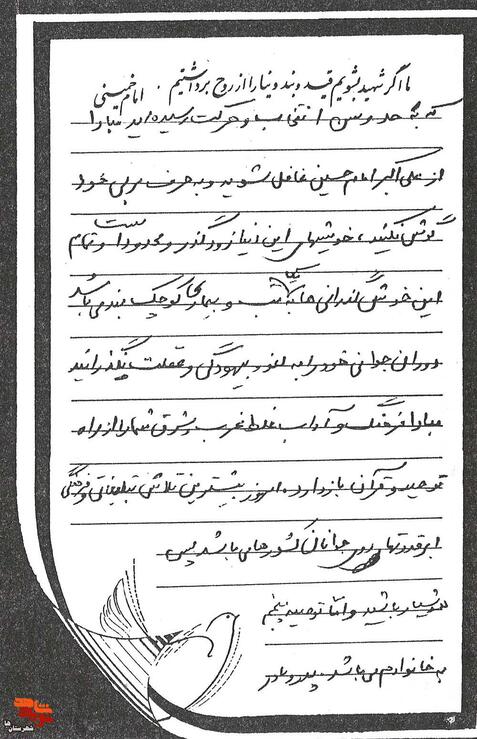 ما اگر شهید بشویم قید و بند دنیا را از روح برداشتیم. امام خمینی
که به حدوسن انتخاب و حرکت رسیده‌اید مبادا
از علی اکبر امام حسین غافل نشوید و به حرف مربی خود
گوش نکنید، خوشیهای این دنیا زودگذر و محدود است و تمام
این خوش گذرانی ها به یک تب و بیماری کوچک بند می باشد
دوران جوانی خود را به لغو و بیهودگی و غفلت نگذرانید
مبادا فرهنگ و آداب غلط غرب و شرق شما را از راه
توحید و قرآن بازدارد. امروز بیشترین تلاش تبلیغاتی و فرهنگی
ابرقدرتها روی جوانان کشورهای ما باشد پس
هوشیار باشید و اما توصیه پنجم
به خانواده‌ام می باشد. پدر و مادر
شهرستان ها